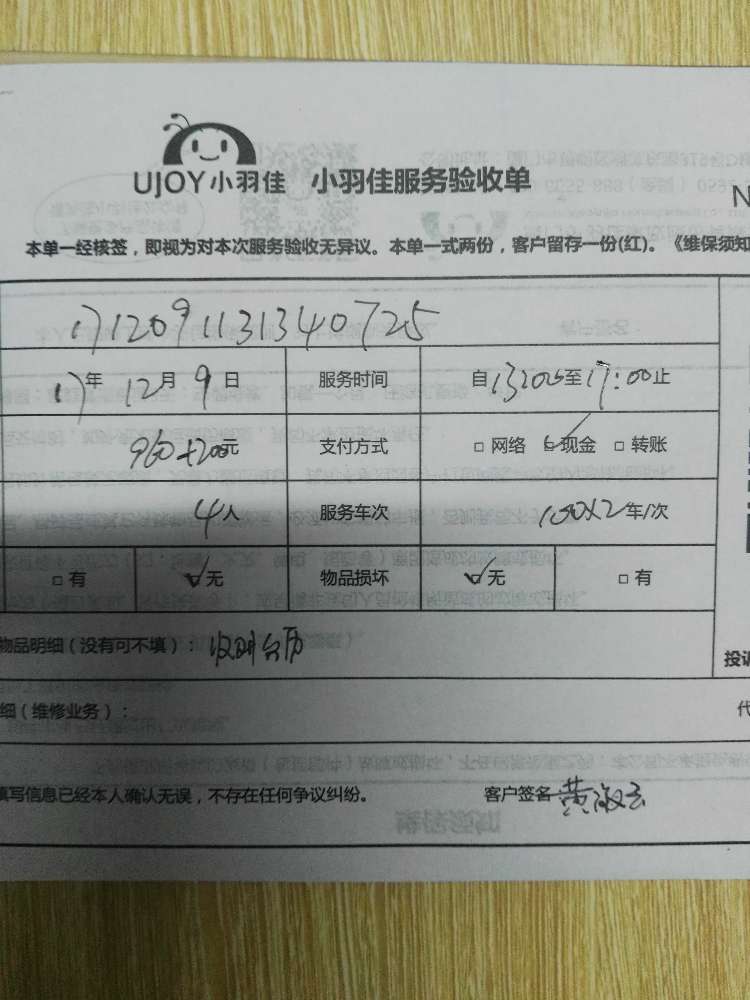 UJOY小羽佳 小羽佳服务验收单
N
本单一经核签，即视为对本次服务验收无异议。本单一式两份，客户留存一份(红)。《维保须知
1712091131340725
17年12月9日 服务时间 自13:00至17:00止
960+200元 支付方式 □ 网络 ☑ 现金 □ 转账
4人 服务车次 100X2车/次
□ 有 ☑ 无 物品损坏 ☑ 无 □ 有
物品明细（没有可不填）： 收明台历
投诉
细（维修业务）： 代
填写信息已经本人确认无误，不存在任何争议纠纷。 客户签名 黄